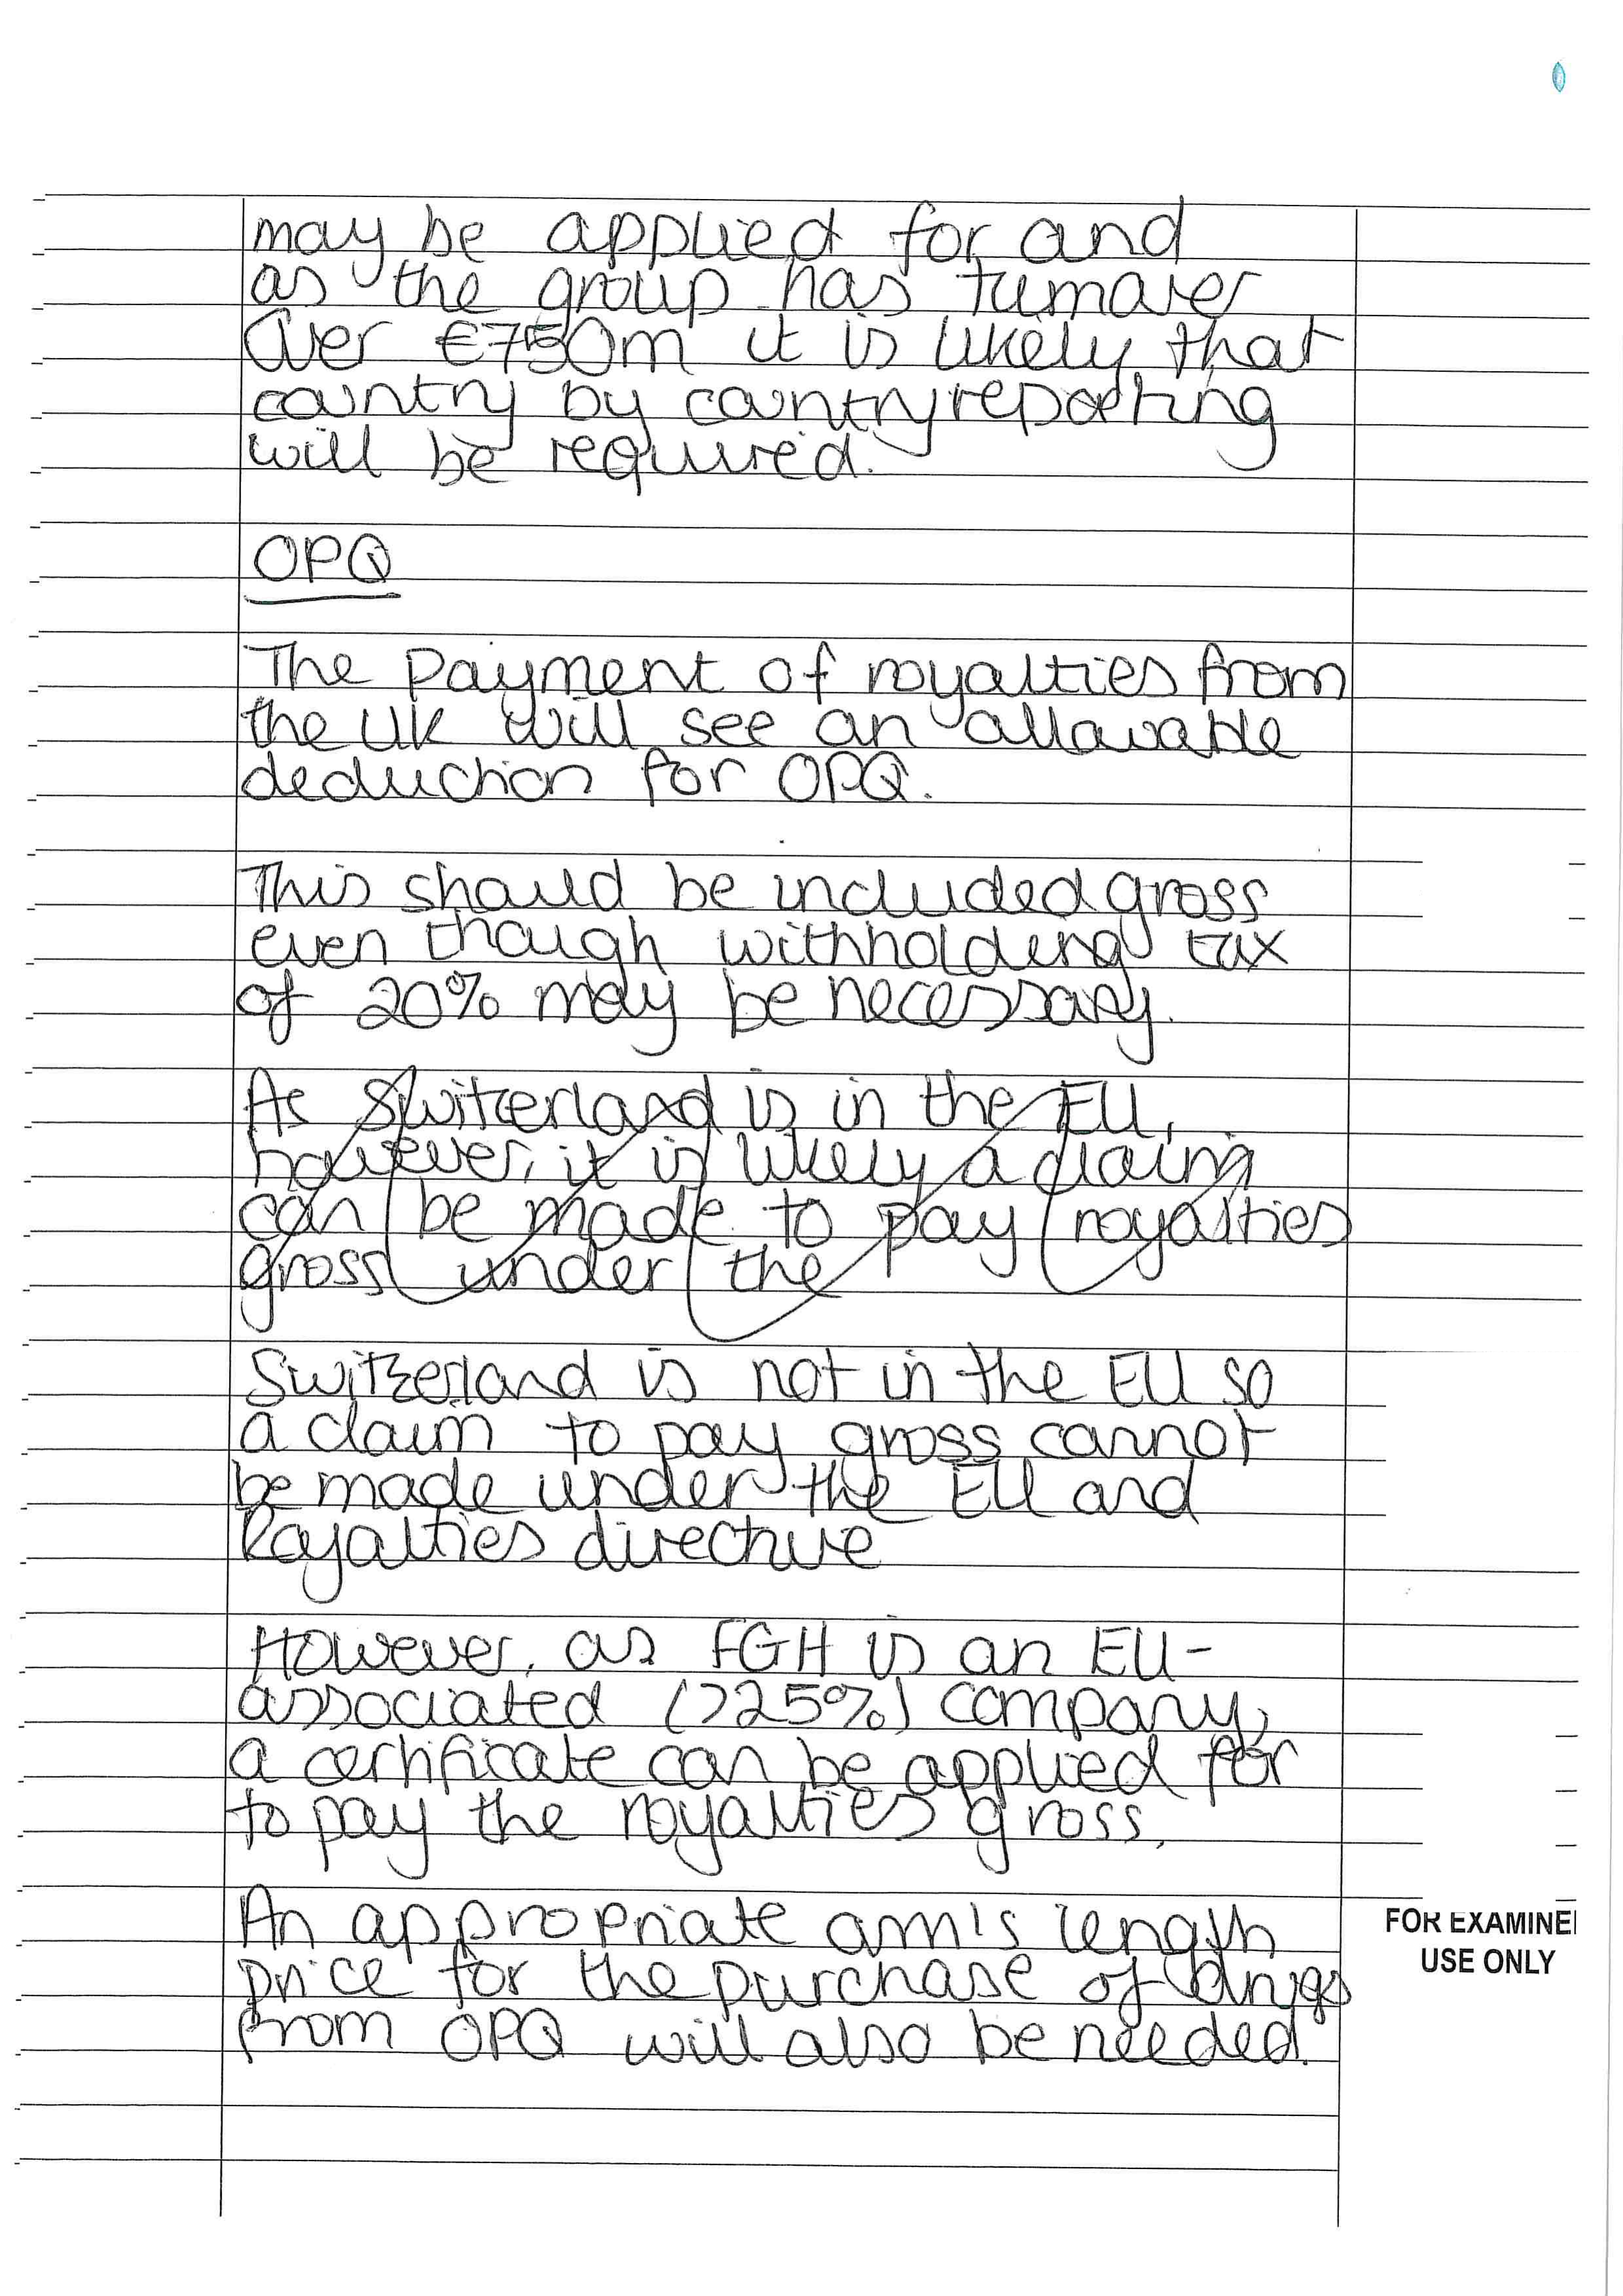 may be applied for and
as the group has turnover
over €750m it is likely that
country by country reporting
will be required.
OPQ
The payment of royalties from
the UK will see an allowable
deduction for OPQ.
This should be included gross
even though withholding tax
of 20% may be necessary.
As Switzerland is in the EU,
however, it is likely a claim
can be made to pay royalties
gross under the
Switzerland is not in the EU so
a claim to pay gross cannot
be made under the EU and
Royalties directive
However, as FGH is an EU-
associated (>25%) company,
a certificate can be applied for
to pay the royalties gross.
An appropriate arm's length
price for the purchase of drugs
from OPQ will also be needed.
FOR EXAMINE
USE ONLY